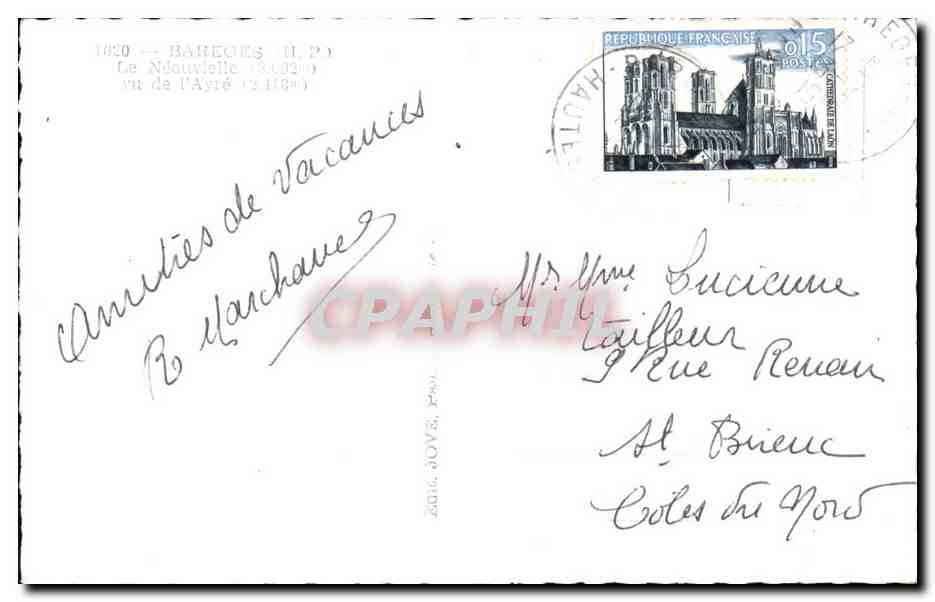 1620 — BAREGES (H. P.)
Le Néouvielle (3.092m)
vu de l'Ayré (2.418m)
Amitiés de Vacances
R Marchand
REPUBLIQUE FRANÇAISE
0,15
POSTES
CATHEDRALE DE LAON
HAUTES
CPAPHIL
Mr Mme Lucienne
Tailleur
9 Rue Renan
St. Brieuc
Côtes du Nord
Edit. JOVE,